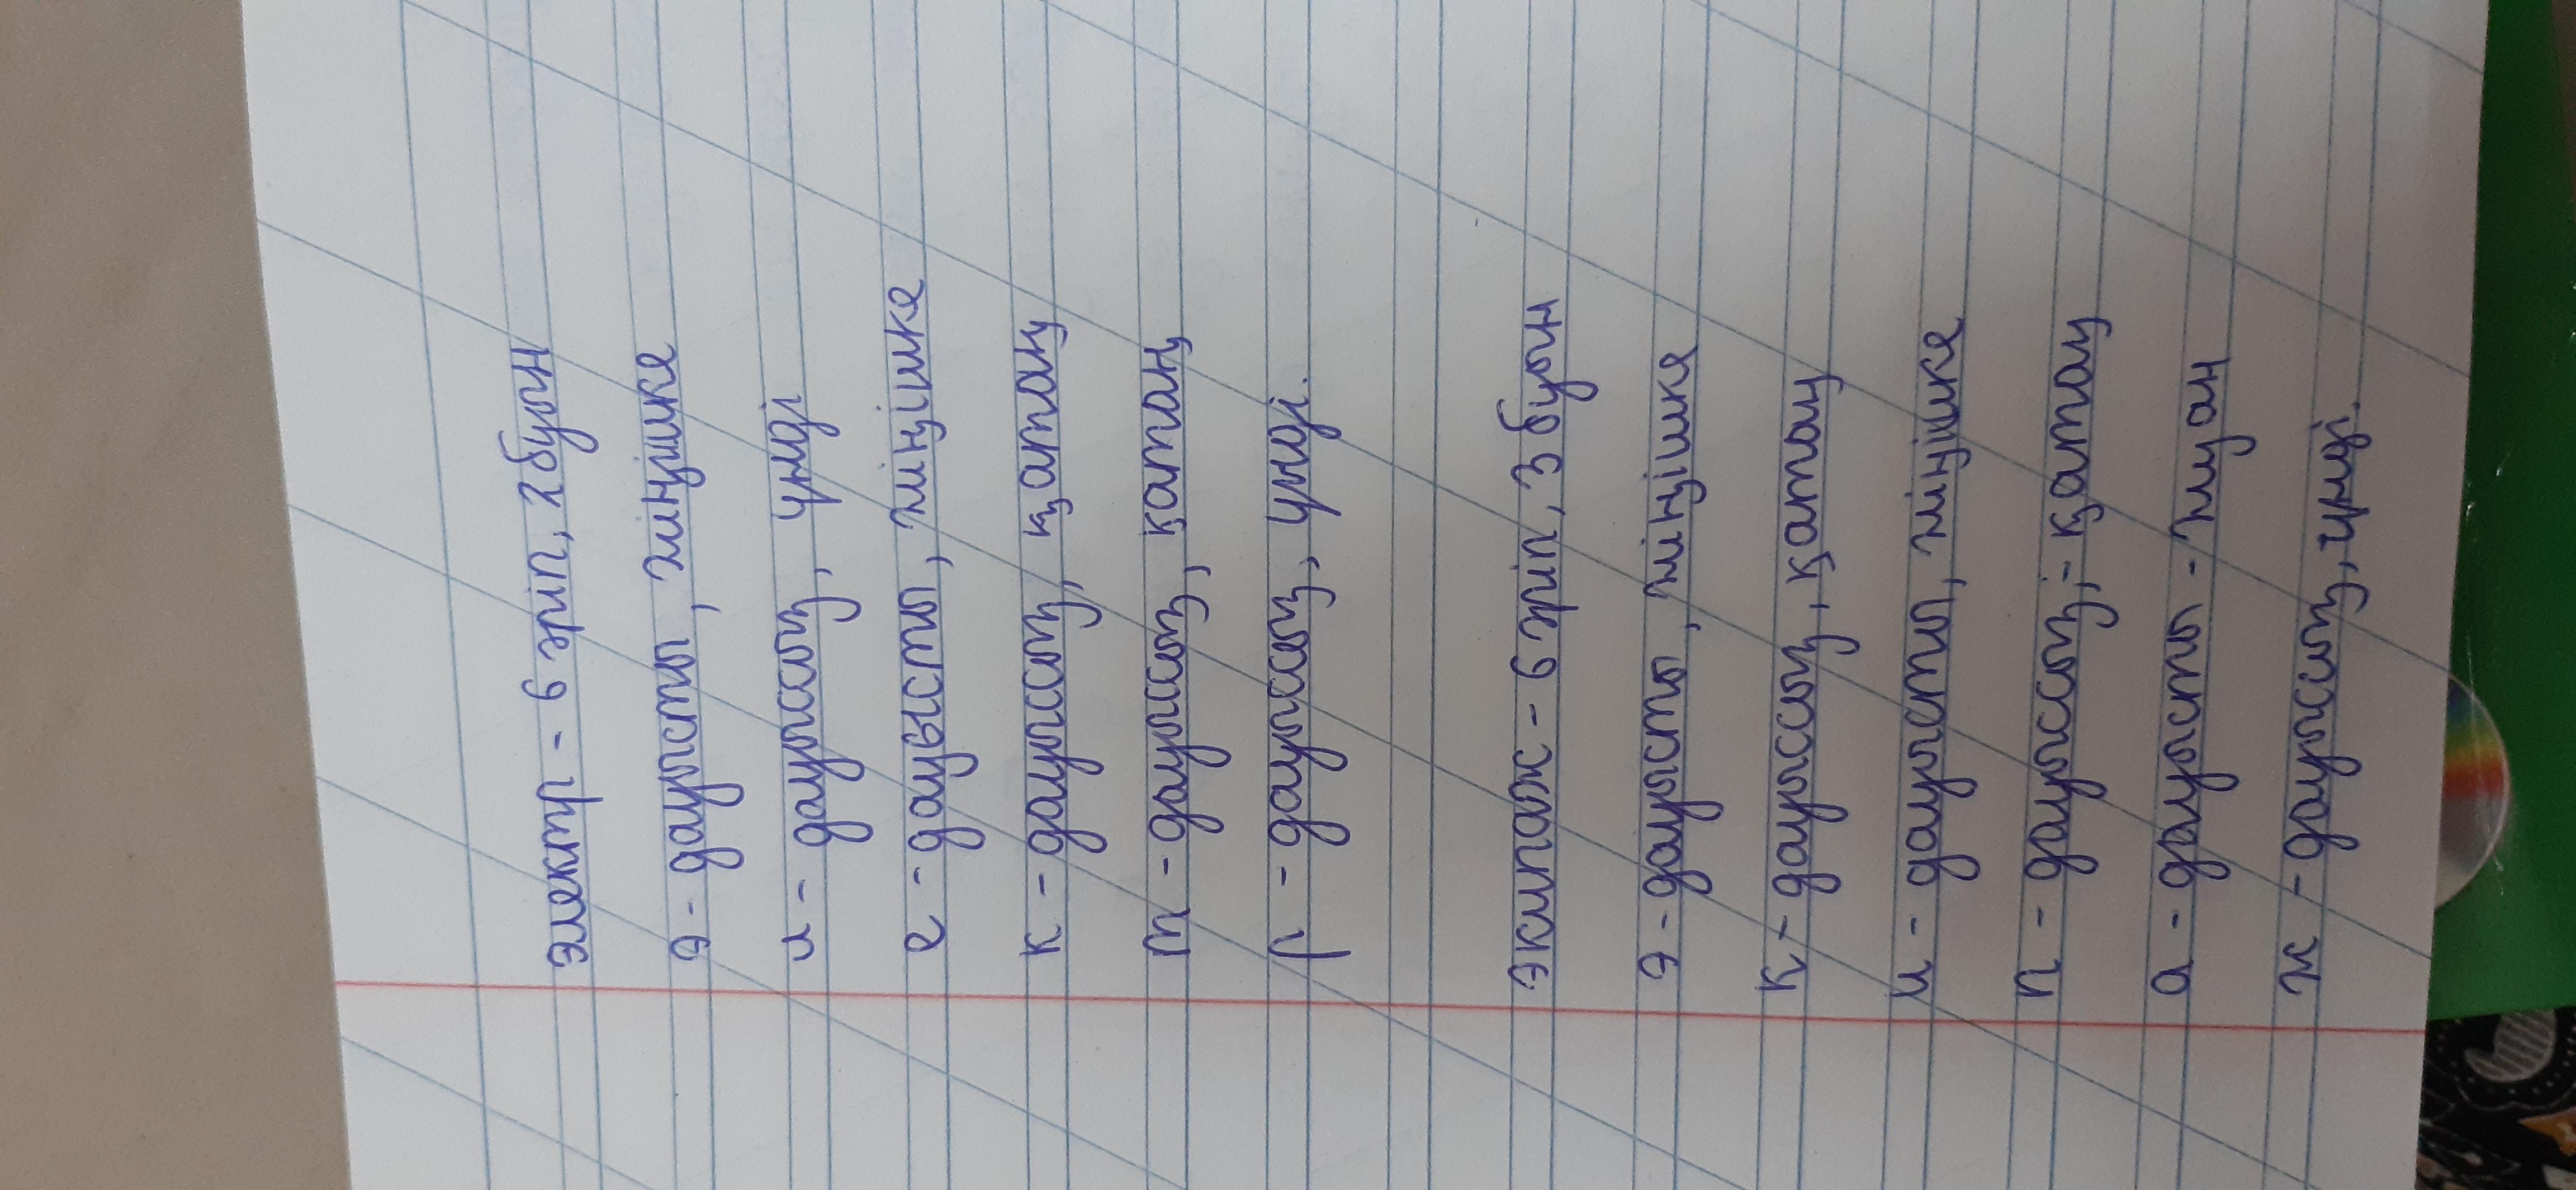 электр - 6 әріп, 2 буын
э - дауысты, жіңішке
л - дауыссыз, үнді
е - даувсты, жіңішке
к - дауыссыз, қатаң
т - дауыссыз, қатаң
р - дауыссыз, үнді.
экипаж - 6 әріп, 3 буын
э - дауысты, жіңішке
к - дауыссыз, қатаң
и - дауысты, жіңішке
п - дауыссыз, - қатаң
а - дауысты - жуан
ж - дауыссыз, үнді.